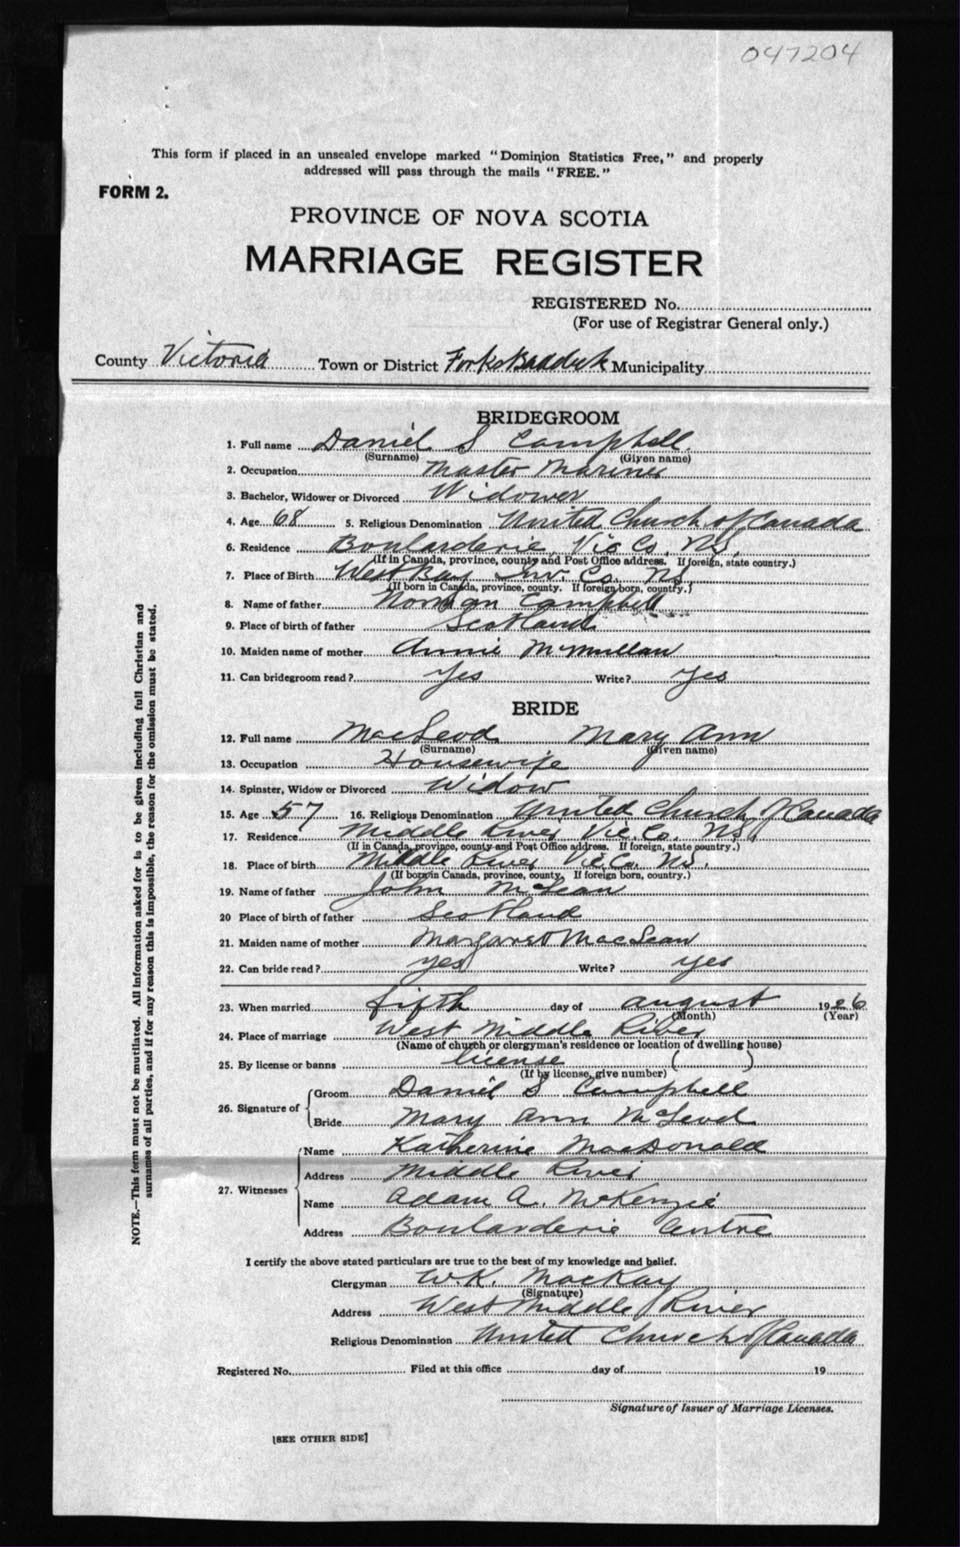 047204
This form if placed in an unsealed envelope marked "Dominion Statistics Free," and properly
addressed will pass through the mails "FREE."
FORM 2.
PROVINCE OF NOVA SCOTIA
MARRIAGE REGISTER
REGISTERED No.
(For use of Registrar General only.)
County Victoria Town or District Forks Baddeck Municipality
BRIDEGROOM
1. Full name Daniel S Campbell
(Surname) (Given name)
2. Occupation Master Mariner
3. Bachelor, Widower or Divorced Widower
4. Age 68 5. Religious Denomination United Church of Canada
6. Residence Boularderie Vic Co. N.S.
(If in Canada, province, county and Post Office address. If foreign, state country.)
7. Place of Birth West Bay Inv. Co. N.S.
(If born in Canada, province, county. If foreign born, country.)
8. Name of father Norman Campbell
9. Place of birth of father Scotland
10. Maiden name of mother Annie McMullan
11. Can bridegroom read? Yes Write? Yes
BRIDE
12. Full name MacLeod Mary Ann
(Surname) (Given name)
13. Occupation Housewife
14. Spinster, Widow or Divorced Widow
15. Age 57 16. Religious Denomination United Church of Canada
17. Residence Middle River Vic. Co. N.S.
(If in Canada, province, county and Post Office address. If foreign, state country.)
18. Place of birth Middle River Vic Co. N.S.
(If born in Canada, province, county. If foreign born, country.)
19. Name of father John McLean
20 Place of birth of father Scotland
21. Maiden name of mother Margaret MacLean
22. Can bride read? yes Write? yes
23. When married fifth day of august 1926
(Month) (Year)
24. Place of marriage West Middle River
(Name of church or clergyman's residence or location of dwelling house)
25. By license or banns license ( )
(If by license, give number)
26. Signature of
Groom Daniel S Campbell
Bride Mary Ann McLeod
27. Witnesses
Name Katherine MacDonald
Address Middle River
Name Adam A. McKenzie
Address Boularderie Centre
I certify the above stated particulars are true to the best of my knowledge and belief.
Clergyman W.K. MacKay
(Signature)
Address West Middle River
Religious Denomination United Church of Canada
Registered No. Filed at this office day of 19
Signature of Issuer of Marriage Licenses.
[SEE OTHER SIDE]
NOTE.—This form must not be mutilated. All information asked for is to be given including full Christian and
surnames of all parties, and if for any reason this is impossible, the reason for the omission must be stated.